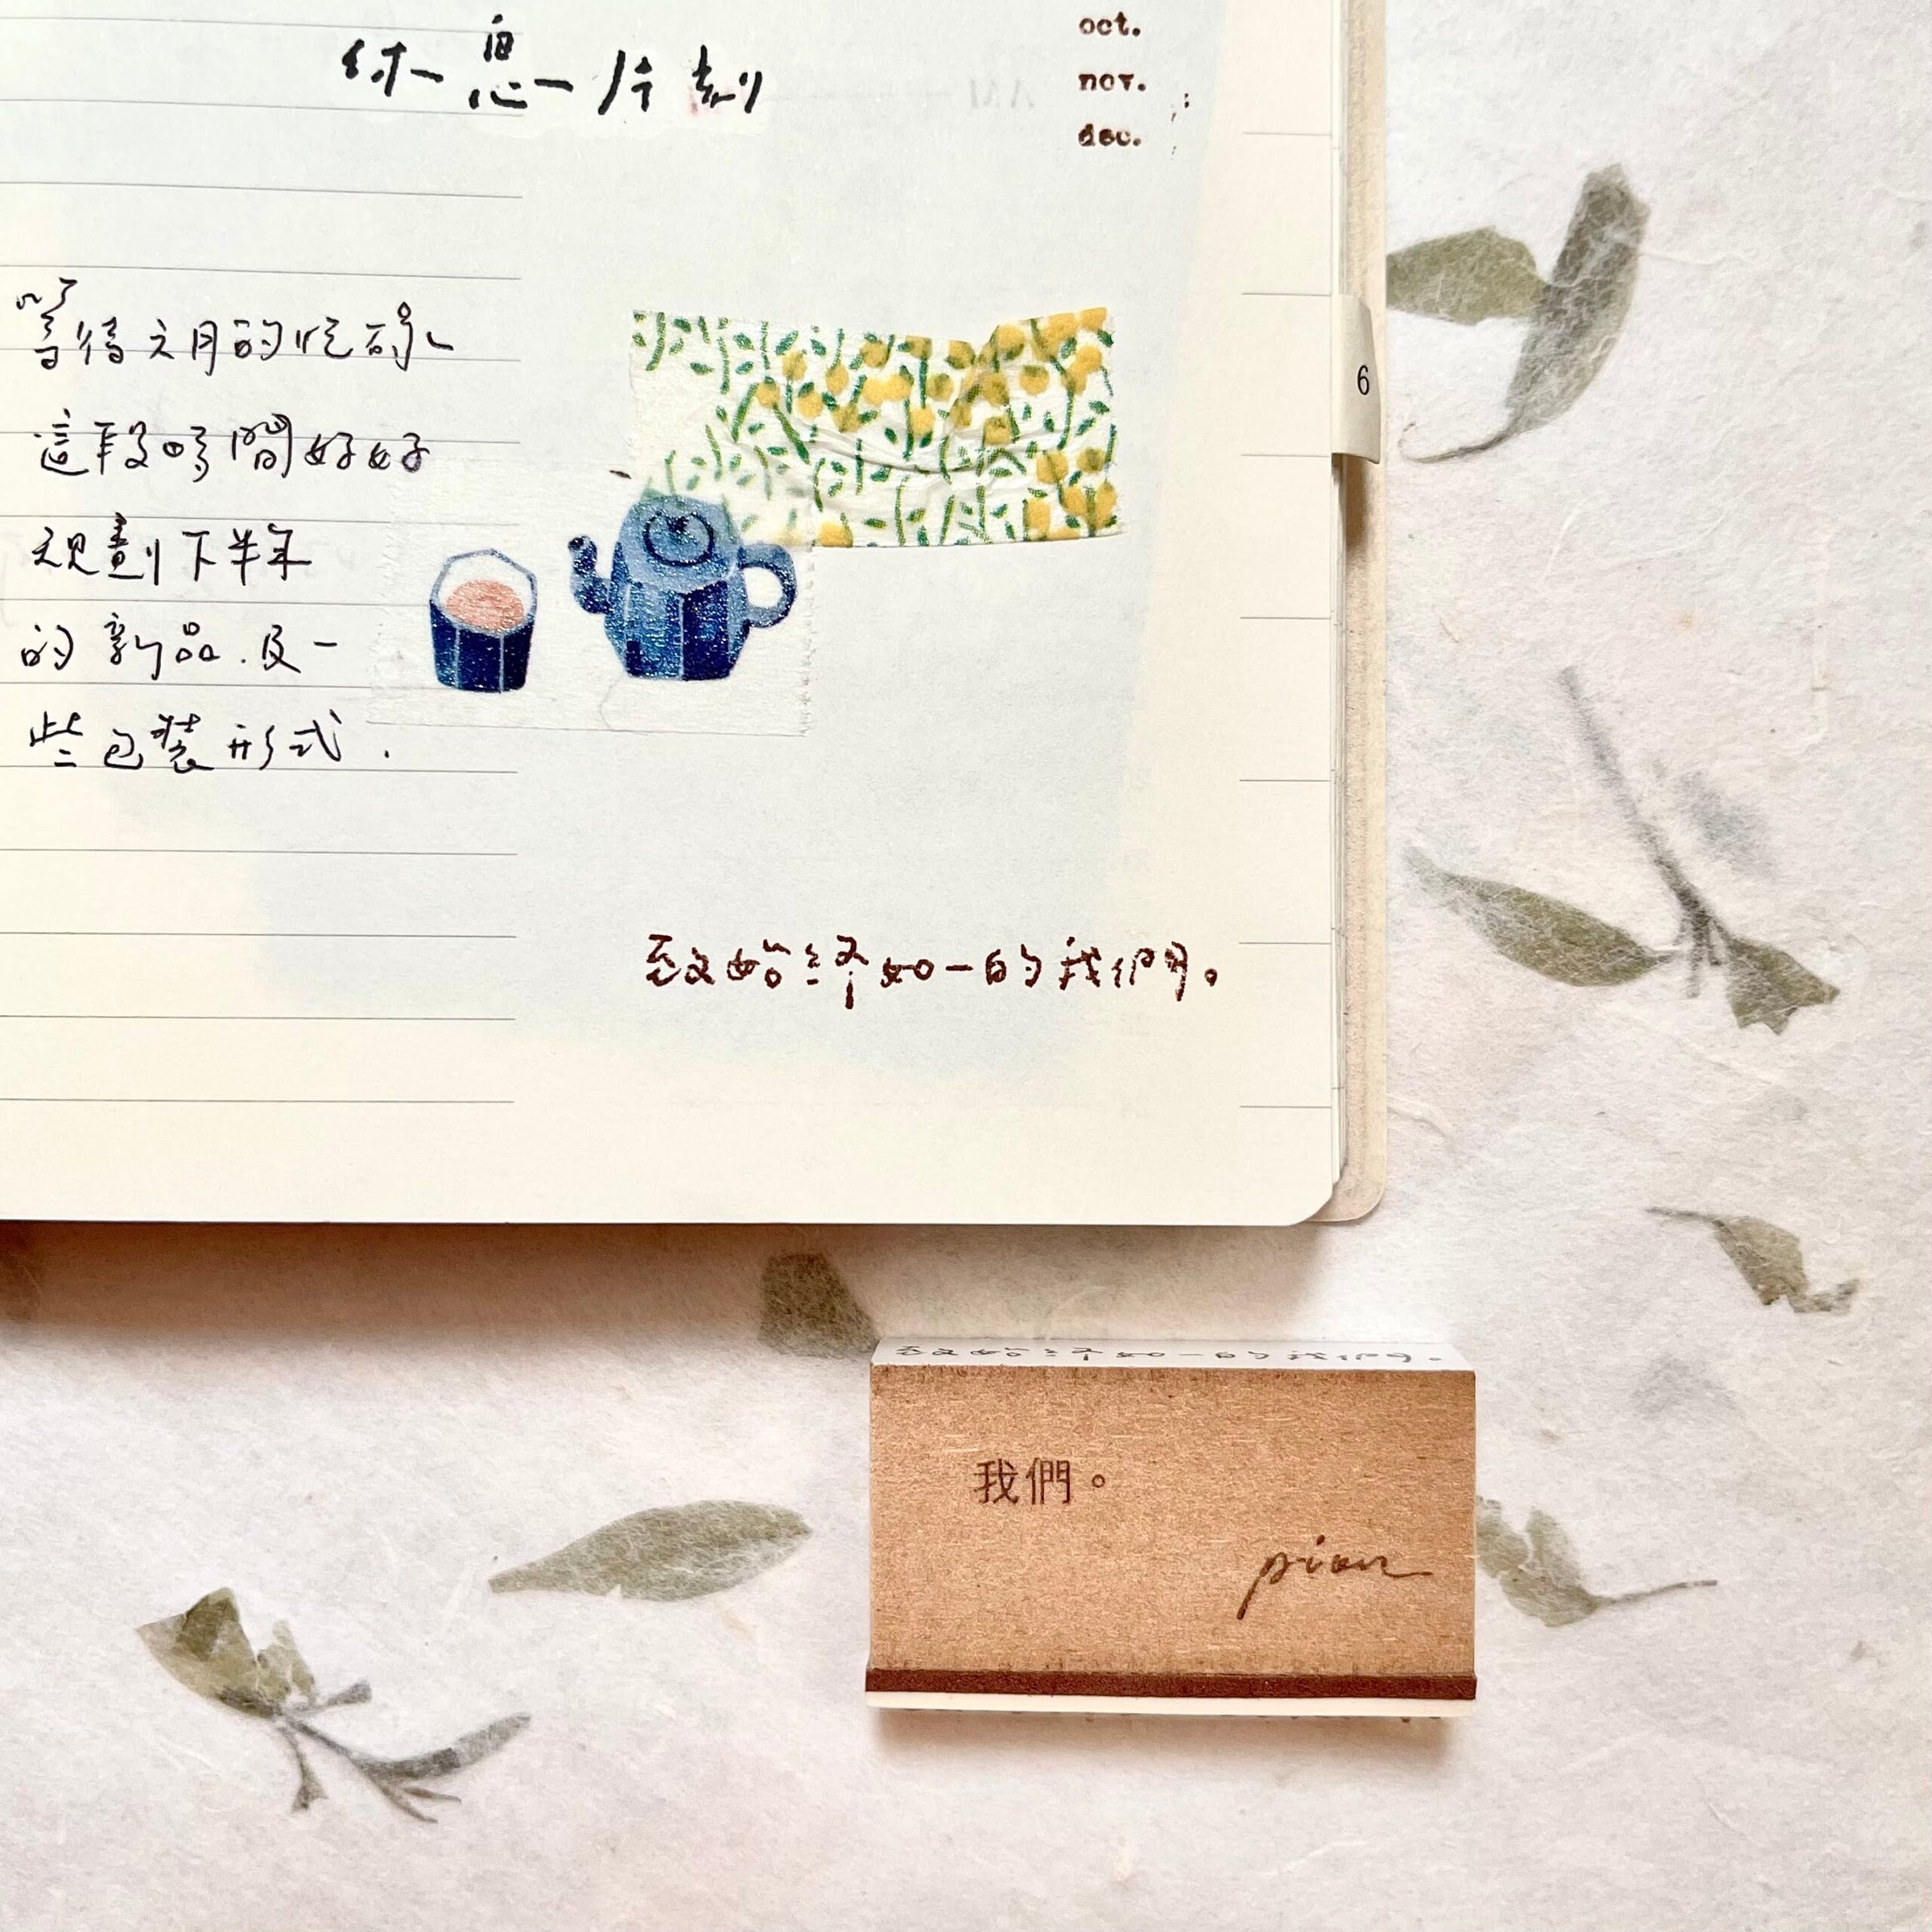 休息一片刻
oct.
nov.
dec.
6
等待月的忙碌
這段時間好好
規劃下半年
的新品.及一
些包裝形式.
致始終如一的我們。
致始終如一的我們。
我們。
pian